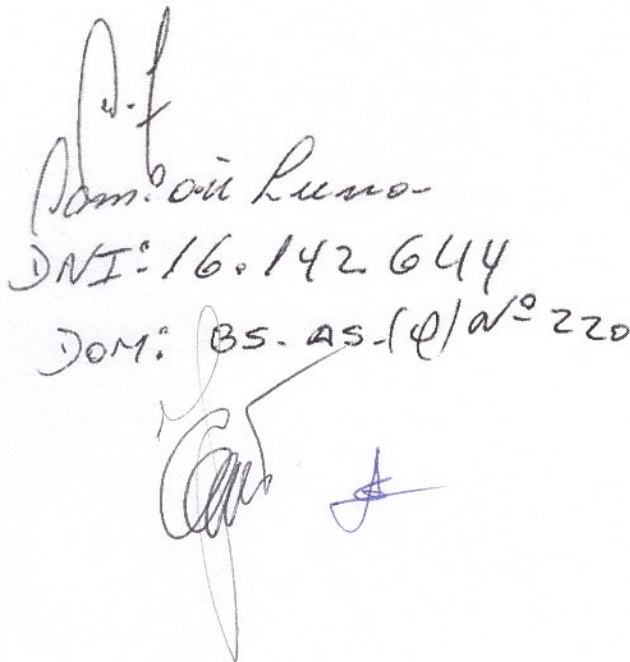 Damián Luna
DNI: 16.142.644
DOM: BS. AS. (P) Nº 220